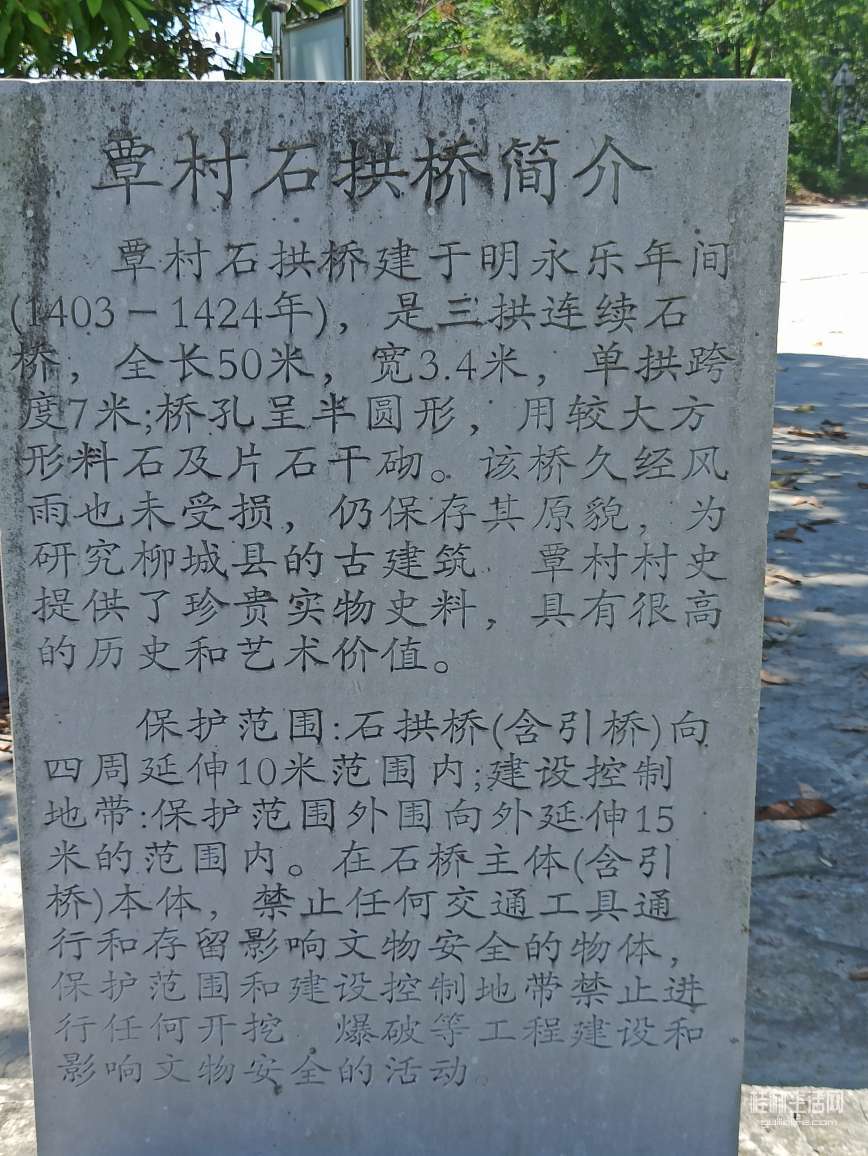 覃村石拱桥简介
覃村石拱桥建于明永乐年间
(1403－1424年)，是三拱连续石
桥，全长50米，宽3.4米，单拱跨
度7米;桥孔呈半圆形，用较大方
形料石及片石干砌。该桥久经风
雨也未受损，仍保存其原貌，为
研究柳城县的古建筑 覃村村史
提供了珍贵实物史料，具有很高
的历史和艺术价值。
保护范围:石拱桥(含引桥)向
四周延伸10米范围内;建设控制
地带:保护范围外围向外延伸15
米的范围内。在石桥主体(含引
桥)本体，禁止任何交通工具通
行和存留影响文物安全的物体，
保护范围和建设控制地带禁止进
行任何开挖 爆破等工程建设和
影响文物安全的活动。
桂林生活网
guilinlife.com